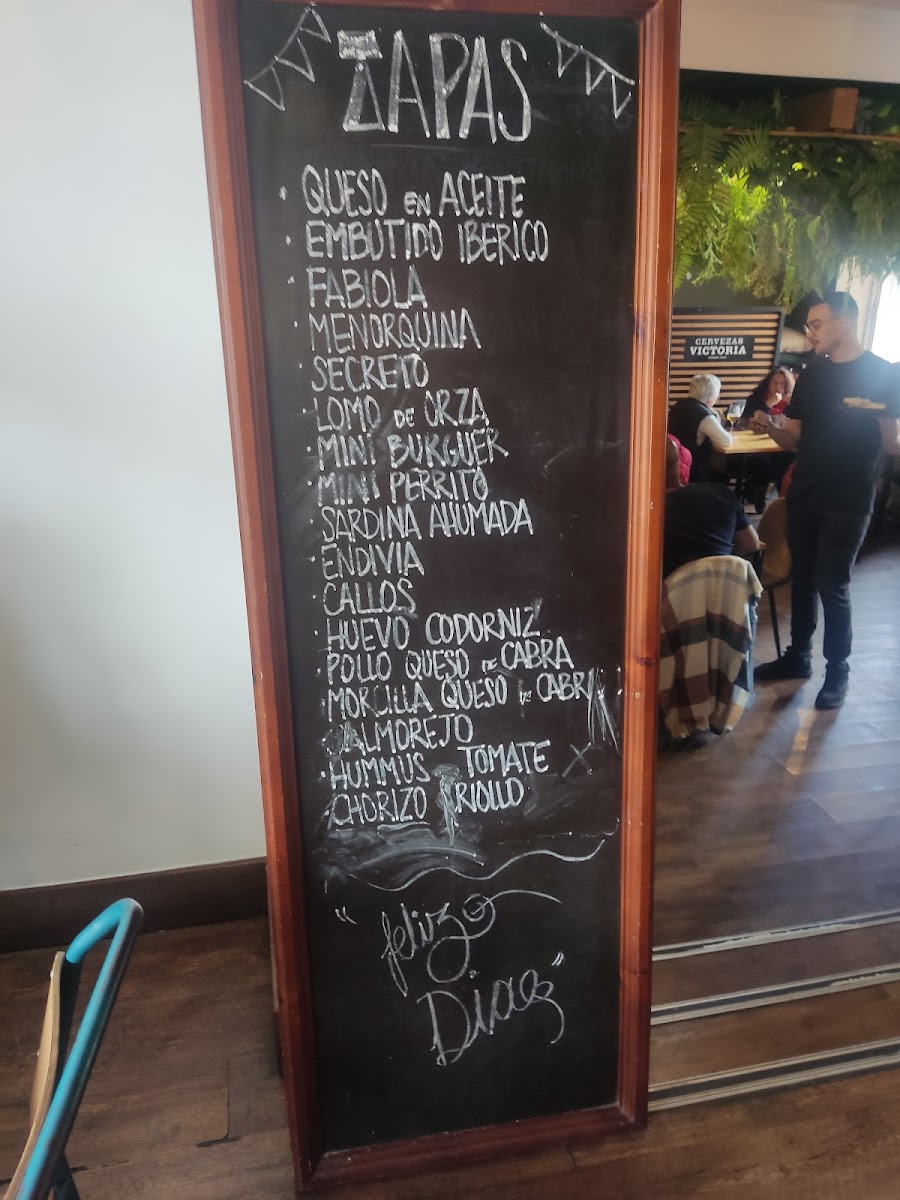 TAPAS
· QUESO EN ACEITE
· EMBUTIDO IBERICO
· FABIOLA
· MENORQUINA
· SECRETO
· LOMO DE ORZA
· MINI BURGUER
· MINI PERRITO
· SARDINA AHUMADA
· ENDIVIA
· CALLOS
· HUEVO CODORNIZ
· POLLO QUESO DE CABRA
· MORCILLA QUESO DE CABRA
SALMOREJO
· HUMMUS TOMATE
· CHORIZO CRIOLLO
"feliz
Dia"
CERVEZAS
VICTORIA